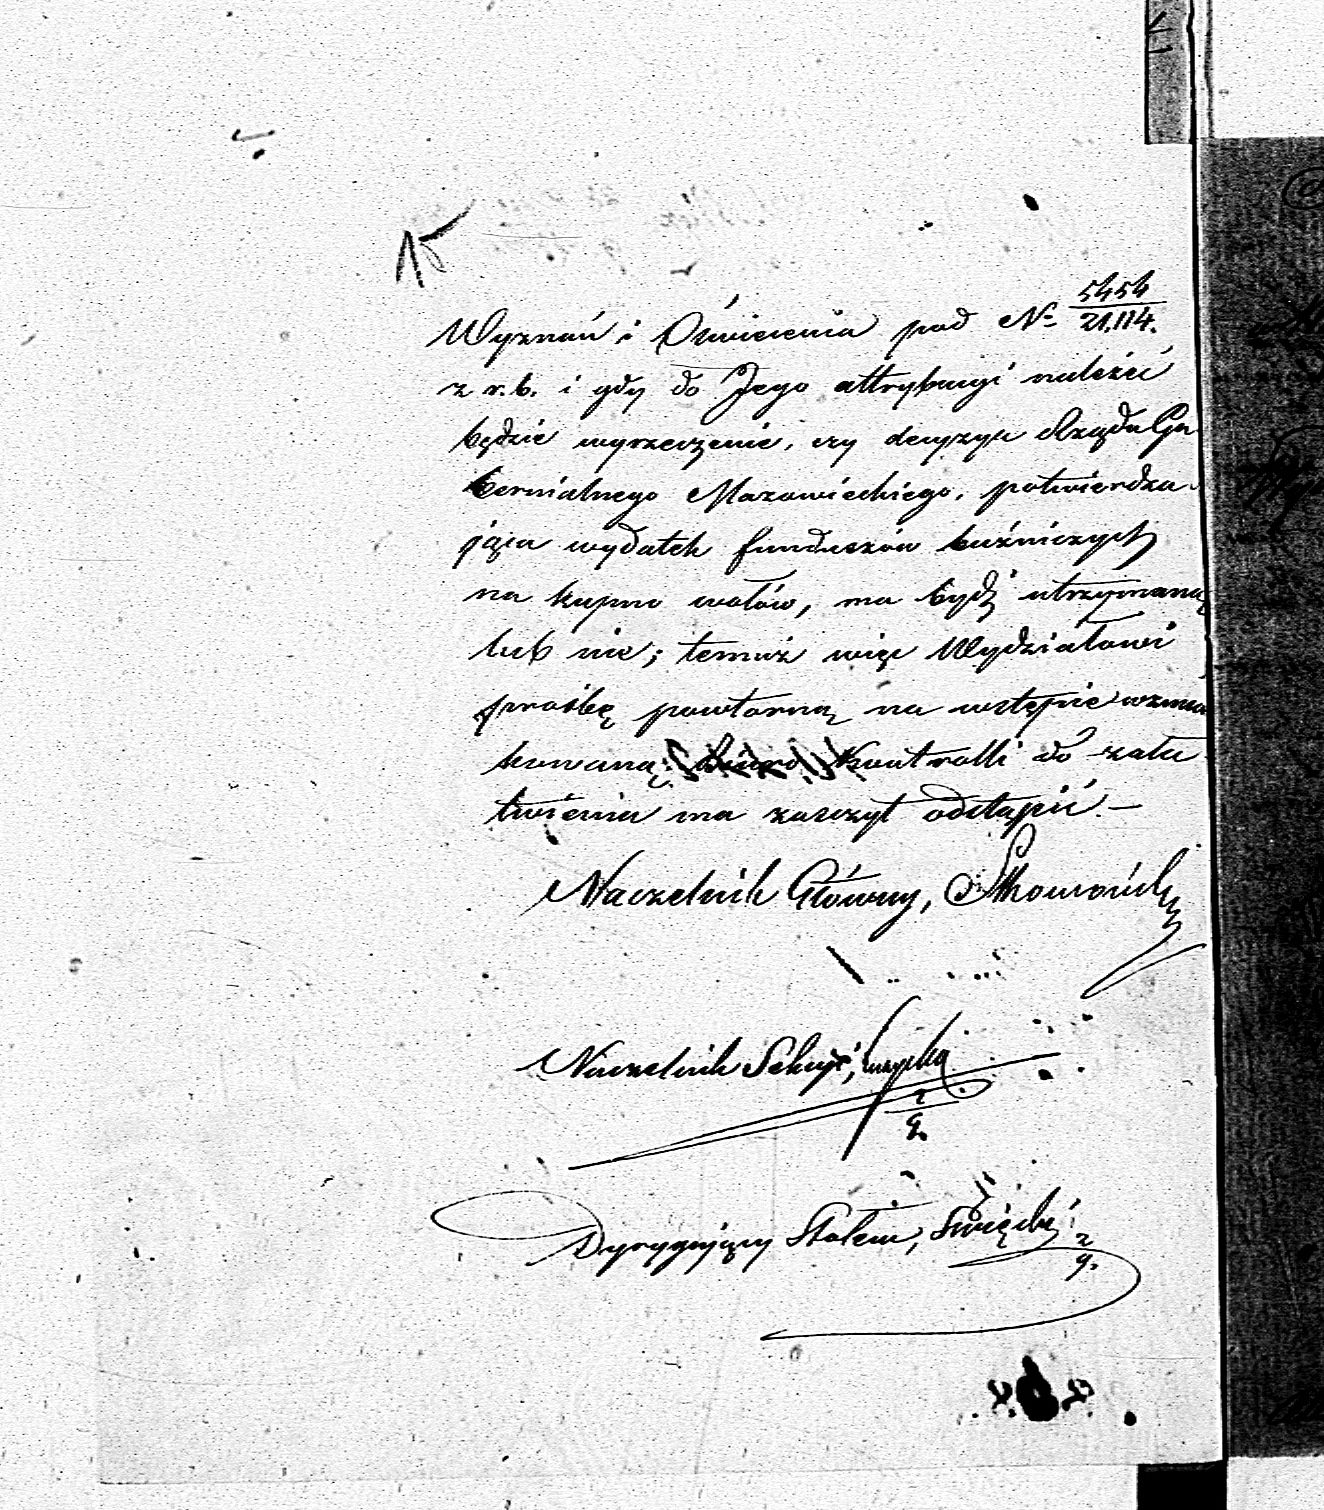 15
Wyznań i Oświecenia pod No 5454/21.114.
z r. b. i gdy do Jego attrybucyi należeć
będzie wyrzeczenie, czy decyzya Rządu Gu
bernialnego Mazowieckiego, potwierdza
jąca wydatek funduszów bużniczych
na kupno wołów, ma bydź utrzymaną
lub nie; temuż więc Wydziałowi
prośbę powtorną na wstępie wzmian
kowaną, Biuro Kontrolli do zała
twienia ma zaszczyt odstąpić.—
Naczelnik Główny,
Naczelnik Sekcyi,
2/9.
Dyrygujący Stołem, Święcki
2/9.